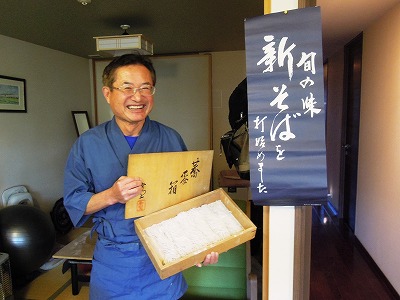 旬の味
新そばを
打始めました
蕎
麦
箱